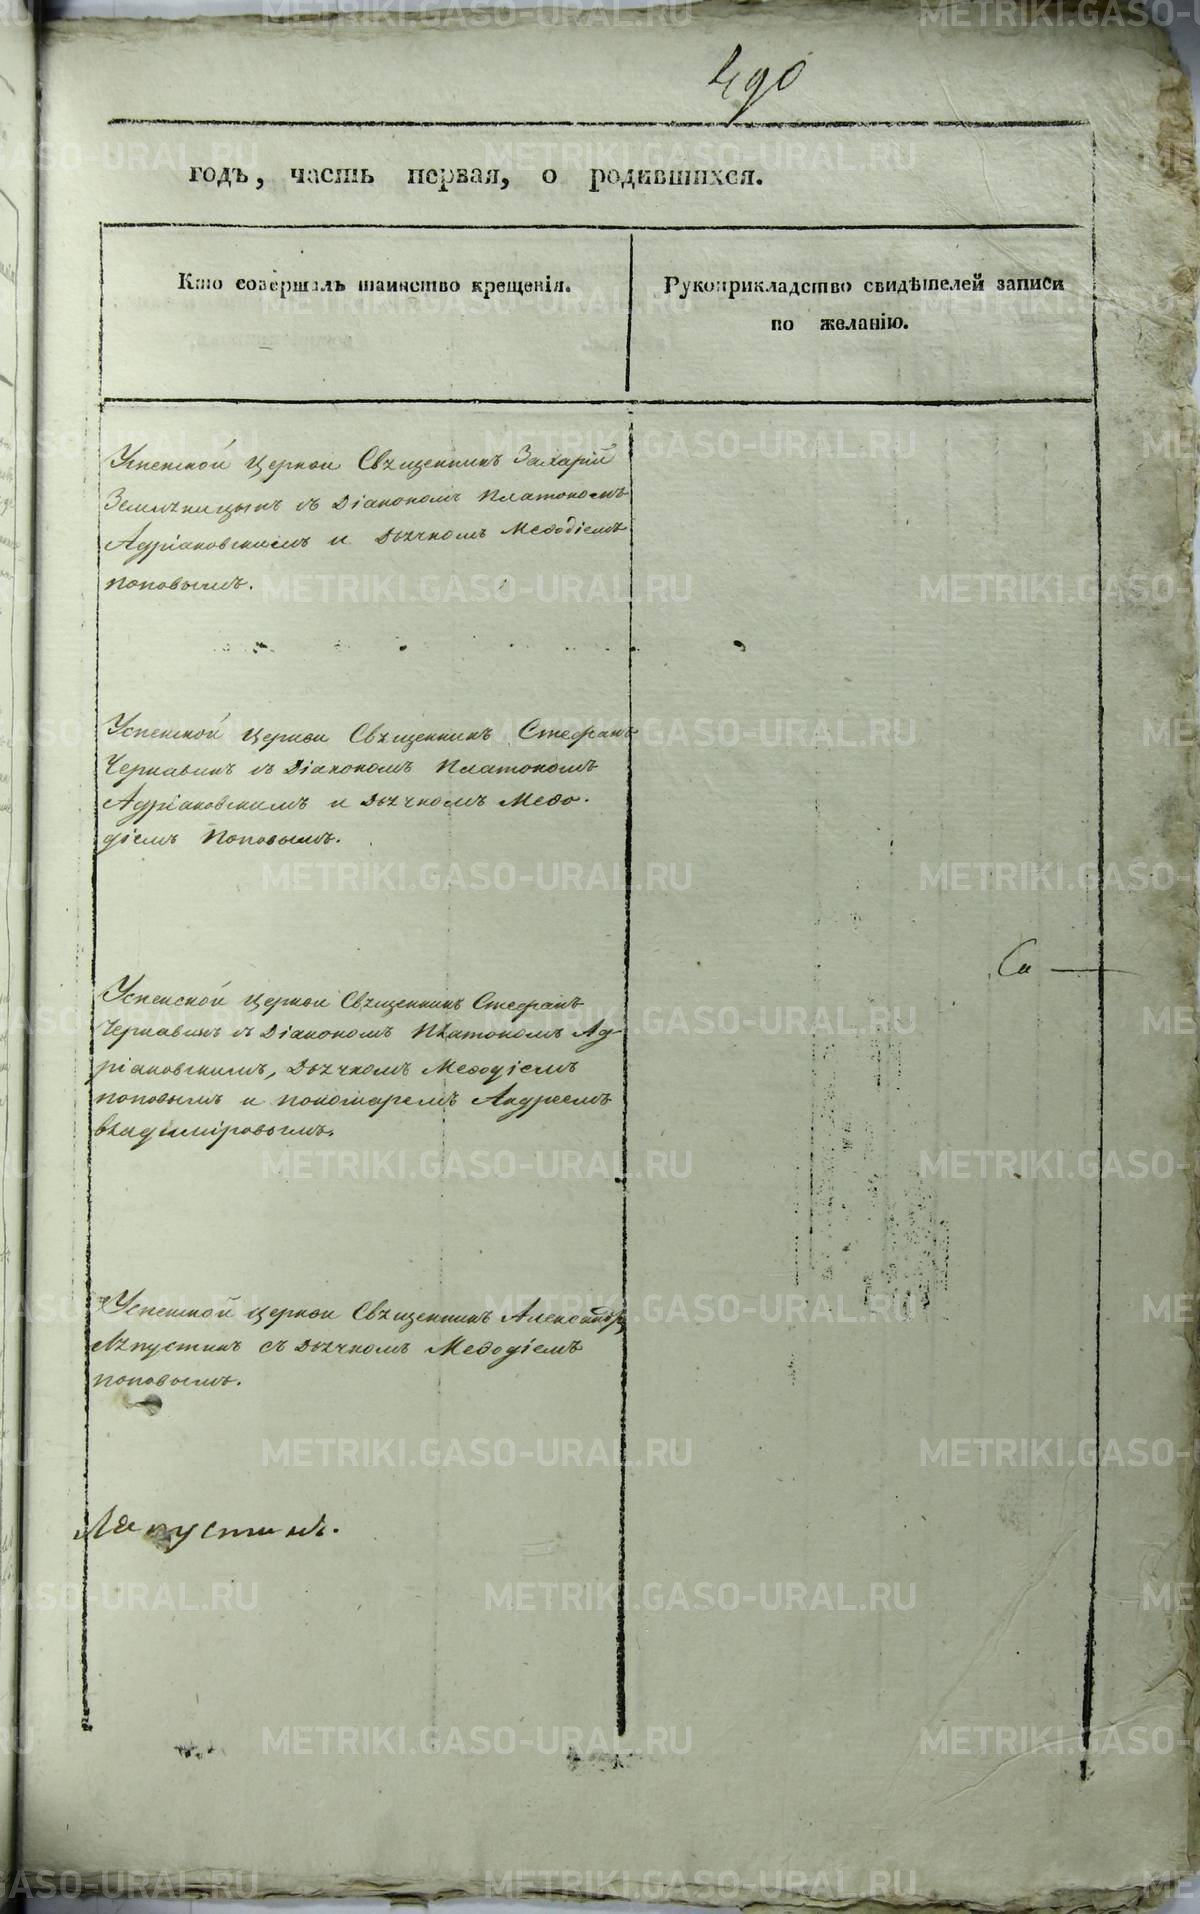 490
годъ, часть первая, о родившихся.
Кто совершалъ таинство крещенія.
Рукоприкладство свидѣтелей записи
по желанію.
Успенской Церкви Священникъ Захарій
съ Діакономъ Платономъ
Адріановскимъ и Дьячкомъ Меѳодіемъ
Поповымъ.
Успенской Церкви Священникъ Стефанъ
Чернавинъ съ Діакономъ Платономъ
Адріановскимъ и Дьячкомъ Меѳо-
діемъ Поповымъ.
Са
Успенской Церкви Священникъ Стефанъ
Чернавинъ съ Діакономъ Платономъ Ад-
ріановскимъ, Дьячкомъ Меѳодіемъ
Поповымъ и пономаремъ Андреемъ
Владиміровымъ.
Успенской Церкви Священникъ Александръ
Ляпустинъ съ Дьячкомъ Меѳодіемъ
Поповымъ.
Ляпустинъ.
METRIKI.GASO-URAL.RU